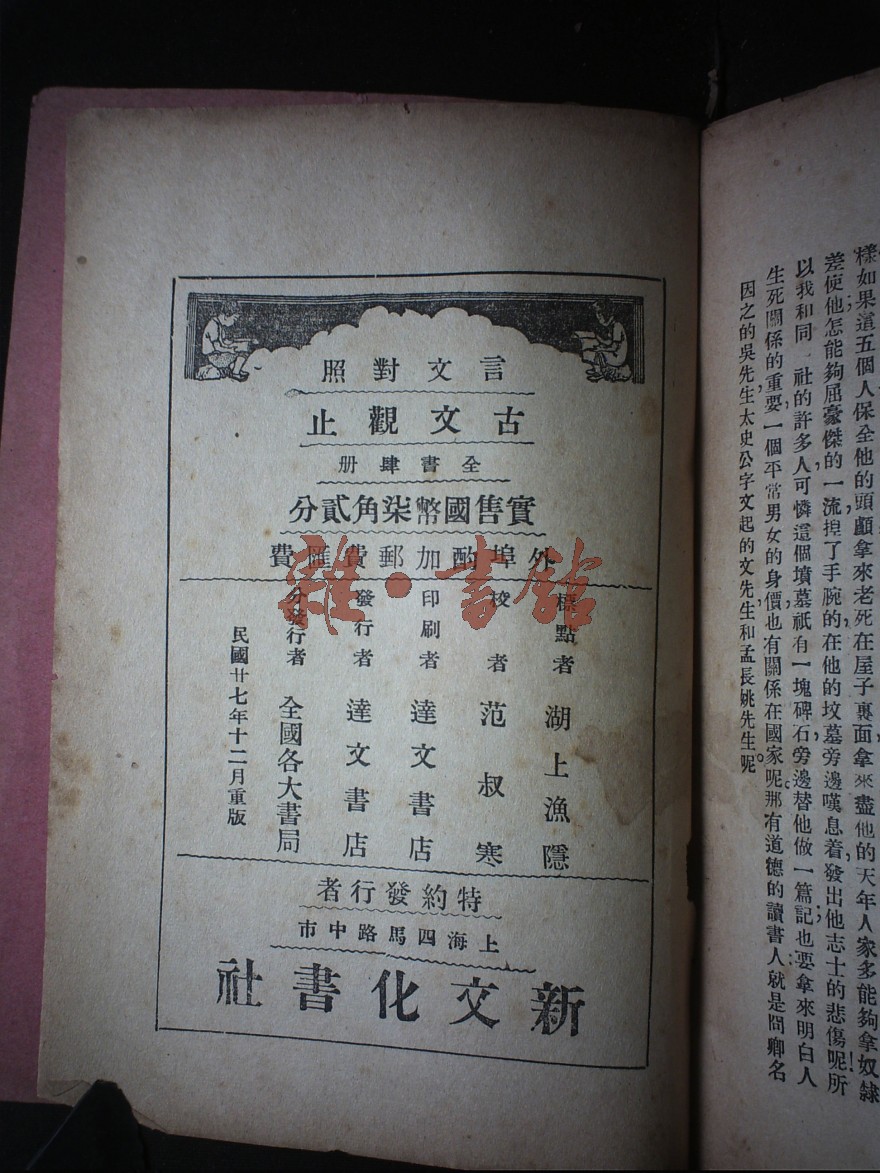 樣如果這五個人保全他的頭顱拿來老死在屋子裏面拿來盡他的天年人家多能夠拿奴隸
差使他怎能夠屈豪傑的一流揑了手腕的在他的坟墓旁邊嘆息着發出他志士的悲傷呢所
以我和同社的許多人可憐這個墳墓祇有一塊碑石旁邊替他做一篇記也要拿來明白人
生死關係的重要一個平常男女的身價也有關係在國家呢那有道德的讀書人就是問卿名
因之的吳先生太史公字文起的文先生和孟長姚先生呢
言文對照
古文觀止
全書肆册
實售國幣柒角貳分
外埠酌加郵費匯費
標點者 湖上漁隱
校者 范叔寒
印刷者 達文書店
發行者 達文書店
分發行者 全國各大書局
民國廿七年十二月重版
特約發行者
上海四馬路中市
新文化書社
雜·書館